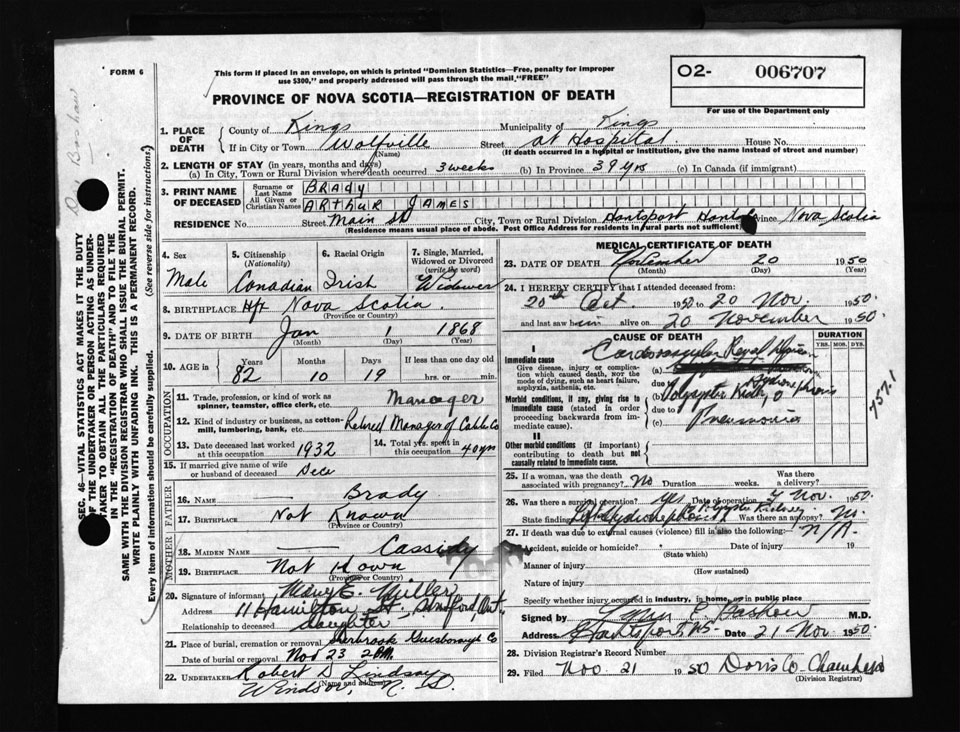 FORM 6
This form if placed in an envelope, on which is printed "Dominion Statistics—Free, penalty for improper
use $300," and properly addressed will pass through the mail, "FREE"
O2- 006707
For use of the Department only
PROVINCE OF NOVA SCOTIA—REGISTRATION OF DEATH
1. PLACE OF DEATH
County of Kings Municipality of Kings
If in City or Town Wolfville Street at Hospital House No.
(Name) (If death occurred in a hospital or institution, give the name instead of street and number)
2. LENGTH OF STAY (in years, months and days)
(a) In City, Town or Rural Division where death occurred 3 weeks (b) In Province 39 yrs (c) In Canada (if immigrant)
3. PRINT NAME OF DECEASED
Surname or Last Name BRADY
All Given or Christian Names ARTHUR JAMES
RESIDENCE No. Street Main St City, Town or Rural Division Hantsport Hants Province Nova Scotia
(Residence means usual place of abode. Post Office Address for residents in rural parts not sufficient)
4. Sex
Male
5. Citizenship (Nationality)
Canadian
6. Racial Origin
Irish
7. Single, Married, Widowed or Divorced (write the word)
Widower
8. BIRTHPLACE Nova Scotia
(Province or Country)
9. DATE OF BIRTH Jan 1 1868
(Month) (Day) (Year)
10. AGE in Years Months Days If less than one day old
82 10 19 hrs. or min.
OCCUPATION
11. Trade, profession, or kind of work as spinner, teamster, office clerk, etc. Manager
12. Kind of industry or business, as cotton-mill, lumbering, bank, etc. Retired Manager of Cable Co
13. Date deceased last worked at this occupation 1932
14. Total yrs. spent in this occupation 40 yrs
15. If married give name of wife or husband of deceased Dece
FATHER
16. NAME Brady
17. BIRTHPLACE Not Known
(Province or Country)
MOTHER
18. MAIDEN NAME Cassidy
19. BIRTHPLACE Not Kown
(Province or Country)
20. Signature of informant Mary E. Miller
Address 11 Hamilton St. Ont.
Relationship to deceased daughter
21. Place of burial, cremation or removal Sherbrook Guesborough Co
Date of burial or removal Nov 23 2 PM
22. UNDERTAKER Robert D Lindsay
(Name and address)
Windsor, N. S.
MEDICAL CERTIFICATE OF DEATH
23. DATE OF DEATH November 20 1950
(Month) (Day) (Year)
24. I HEREBY CERTIFY that I attended deceased from:
20th Oct. 1950 to 20 Nov. 1950.
and last saw him alive on 20 November 1950.
CAUSE OF DEATH
DURATION
YRS. MOS. DYS.
I
Immediate cause
Give disease, injury or complication which caused death, not the mode of dying, such as heart failure, asphyxia, asthenia, etc.
Morbid conditions, if any, giving rise to immediate cause (stated in order proceeding backwards from immediate cause).
II
Other morbid conditions (if important) contributing to death but not causally related to immediate cause.
Cardiovascular Renal
(a)
due to Hydronephrosis
(b)
due to
(c) Pneumonia
757.1
25. If a woman, was the death associated with pregnancy? No Duration weeks. Was there a delivery?
26. Was there a surgical operation? Yes Date of operation 7 Nov. 1950.
State findings Left Kidney Was there an autopsy? No.
27. If death was due to external causes (violence) fill in also the following: N/A.
Accident, suicide or homicide? Date of injury 19
(State which)
Manner of injury
(How sustained)
Nature of injury
Specify whether injury occurred in industry, in home, or in public place
Signed by M.D.
Address Hantsport, NS Date 21 Nov 1950.
28. Division Registrar's Record Number
29. Filed Nov. 21 1950 Doris C.
(Division Registrar)
SEC. 46—VITAL STATISTICS ACT MAKES IT THE DUTY
OF THE UNDERTAKER OR PERSON ACTING AS UNDER-
TAKER TO OBTAIN ALL THE PARTICULARS REQUIRED
IN THE "REGISTRATION OF DEATH" AND TO FILE THE
SAME WITH THE DIVISION REGISTRAR WHO SHALL ISSUE THE BURIAL PERMIT.
WRITE PLAINLY WITH UNFADING INK. THIS IS A PERMANENT RECORD.
Every item of information should be carefully supplied. (See reverse side for instructions)